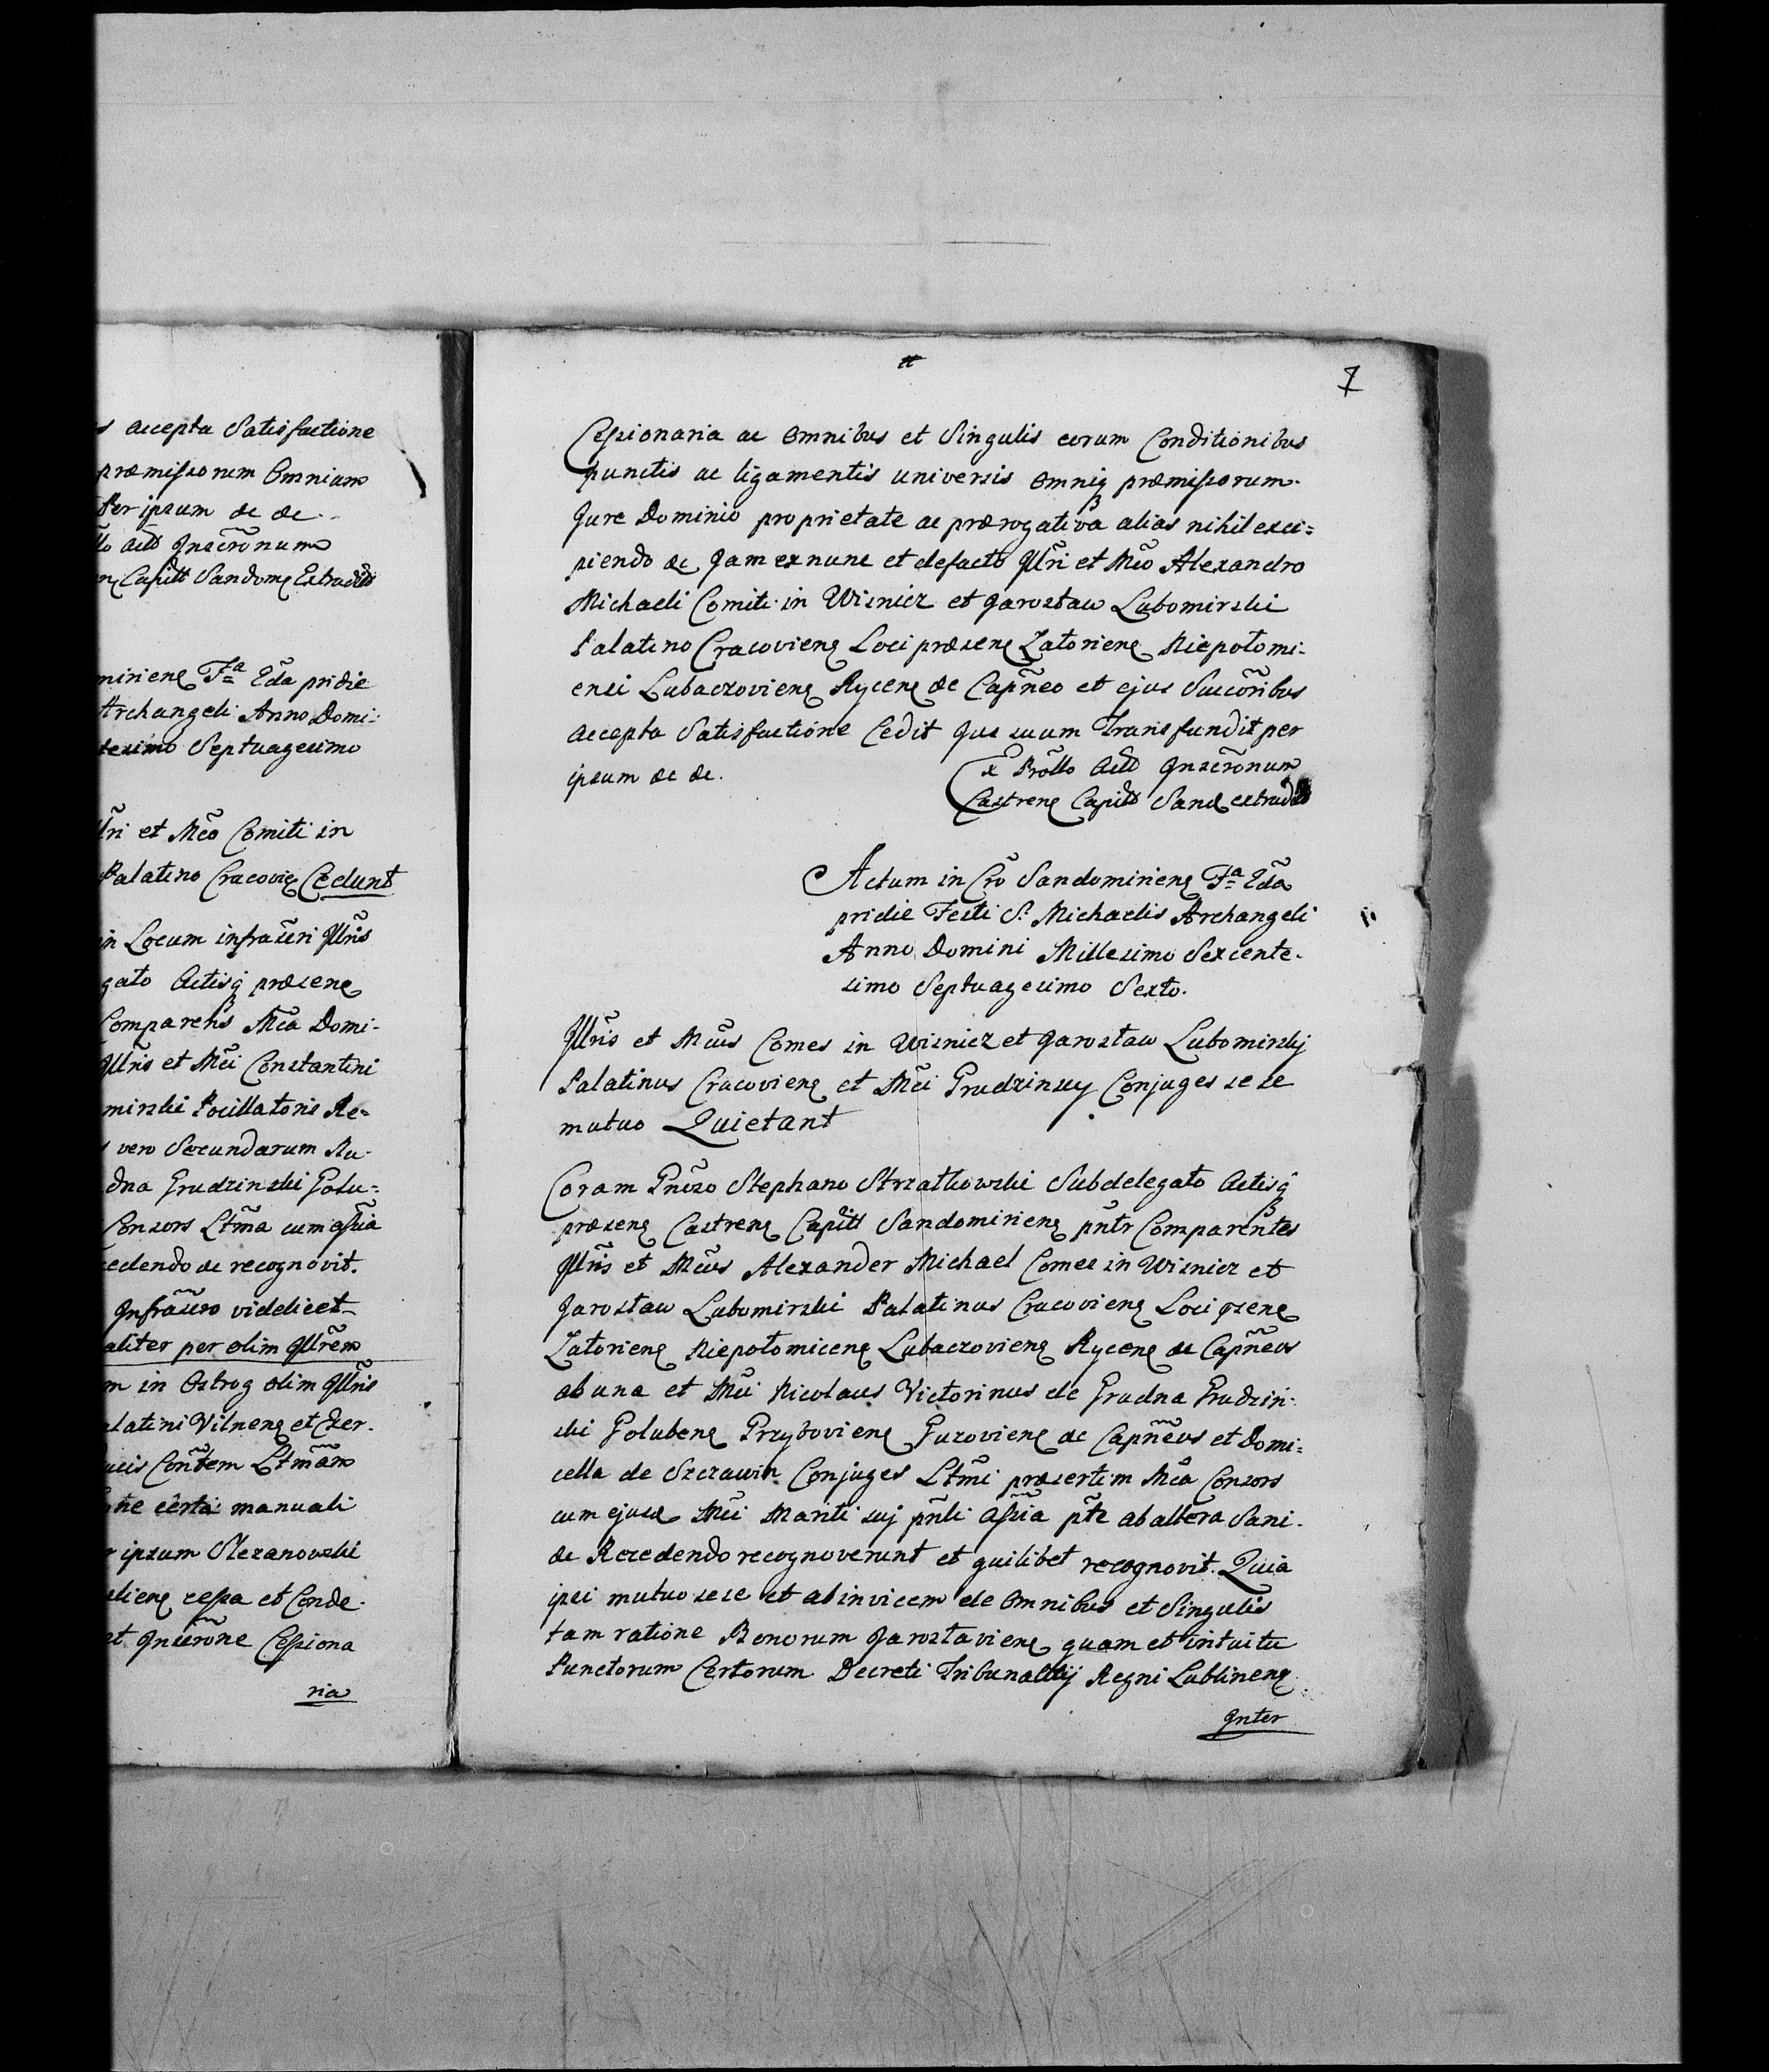 s accepta Satisfactione
præmissorum Omnium
Per ipsum &c &c.
Capitt Sandomę Extradit
mirienę Fa 2da pridie
Archangeli Anno Domi-
tesimo Septuagesimo
Illri et Mco Comiti in
Palatino Cracovię Cedunt
in Locum infrascri Illris
gato Actisq præsenę
Comparens Mca Domi-
Illris et Mci Constantini
mirski Pocillatoris Re-
vero Secundarum Nu-
dna Grudzinski Golu=
Consors Ltma cum assia
cedendo &c recognovit.
Infrascro videlicet
aliter per olim Illrem
m in Ostrog olim Illris
alatini Vilnenę et Exer-
ucis Contem Ltmam
certa manuali
r ipsum Slezanowski
slienę cessa et Conde-
et Inscrone Cessiona
ria
7
Cessionaria ac Omnibus et Singulis eorum Conditionibus
punctis ac ligamentis universis omniq præmissorum
Jure Dominio proprietate ac prærogativa alias nihil exci=
piendo &c Jam ex nunc et de facto Illri et Mco Alexandro
Michaeli Comiti in Wisnicz et Jarosław Lubomirski
Palatino Cracovienę Loci præsenę Zatorienę Niepołomi-
ensi Lubaczovienę Rycenę &c Capneo et ejus Succoribus
accepta Satisfactione Cedit Jus suum Transfundit per
ipsum &c &c.
Ex Prothllo Actt Inscronum
Castrenę Capitt Sandę extradit
Actum in Cro Sandomirienę Fa 2da
pridie Festi S. Michaelis Archangeli
Anno Domini Millesimo Sexcente-
simo Septuagesimo Sexto.
Illris et Mcus Comes in Wisnicz et Jarosław Lubomirskij
Palatinus Cracovienę et Mci Grudzinscy Conjuges sese
mutuo Quietant
Coram Gnoso Stephano Strzałkowski Subdelegato Actisq
præsenę Castrenę Capitt Sandomirienę pntr Comparentes
Illris et Mcus Alexander Michael Comes in Wisnicz et
Jarosław Lubomirski Palatinus Cracovienę Loci psenę
Zatorienę Niepołomicenę Lubaczovienę Rycenę &c Capneus
ab una et Mci Nicolaus Victorinus de Grudna Grudzin-
ski Golubenę Grzybovienę Guzovienę &c Capneus et Domi=
cella de Szczawin Conjuges Ltmi præsertim Mca Consors
cum ejusd Mci Mariti suj pntli assia pte ab altera Sani-
&c Recedendo recognoverunt et quilibet recognovit. Quia
ipsi mutuo sese et ab invicem de Omnibus et Singulis
tam ratione Bonorum Jarosłavienę quam et intuitu
Punctorum Certorum Decreti Tribunalitij Regni Lublinenę
Inter